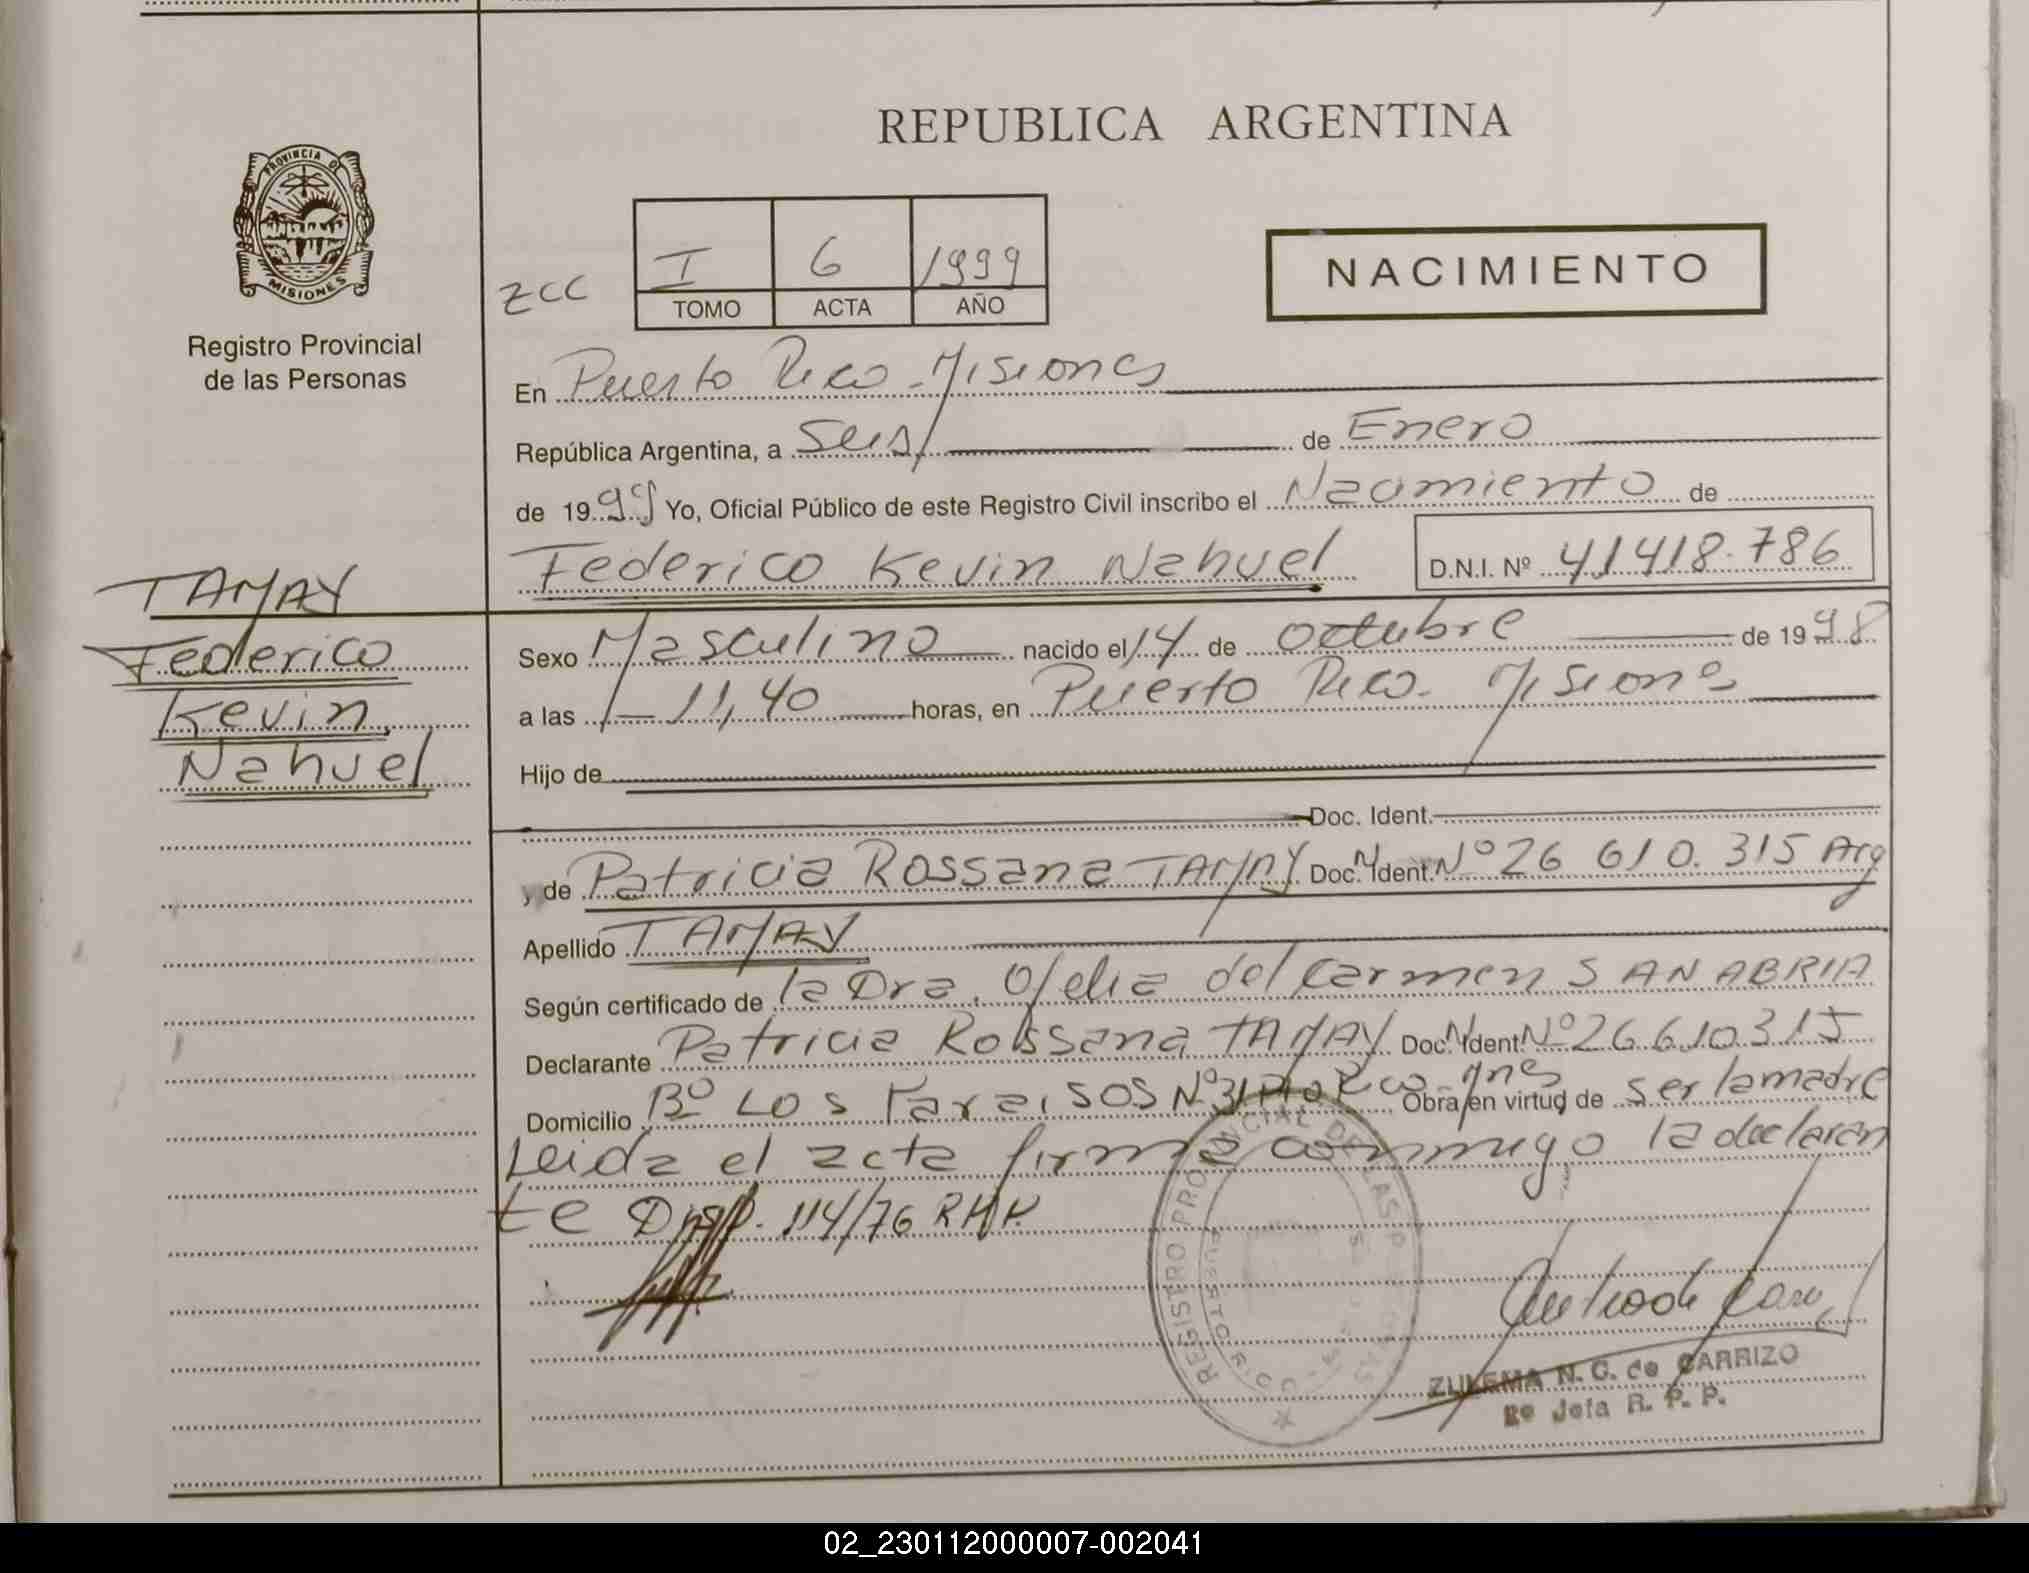 REPUBLICA ARGENTINA
PROVINCIA DE
MISIONES
Registro Provincial
de las Personas
ZCC
I 6 1999
TOMO ACTA AÑO
NACIMIENTO
En Puerto Rico - Misiones
República Argentina, a Seis de Enero
de 1999 Yo, Oficial Público de este Registro Civil inscribo el Nacimiento de
Federico Kevin Nahuel D.N.I. Nº 41418.786
TAMAY
Federico
Kevin
Nahuel
Sexo Masculino nacido el 14 de octubre de 1998
a las 11,40 horas, en Puerto Rico. Misiones
Hijo de
Doc. Ident.
y de Patricia Rossana TAMAY Doc. Ident. Nº 26 610.315 Arg
Apellido TAMAY
Según certificado de la Dra. Ofelia del Carmen SANABRIA
Declarante Patricia Rossana TAMAY Doc. Ident. Nº 26610315
Domicilio Bº Los Paraisos Nº 31 Pto Rico - Mnes Obra en virtud de ser la madre
Leida el acta firma conmigo la declaran
te Disp. 114/76 R.P.P.
REGISTRO PROVINCIAL DE LAS PERSONAS
PUERTO RICO
ZULEMA N. C. de CARRIZO
2º Jefa R. P. P.
02_230112000007-002041